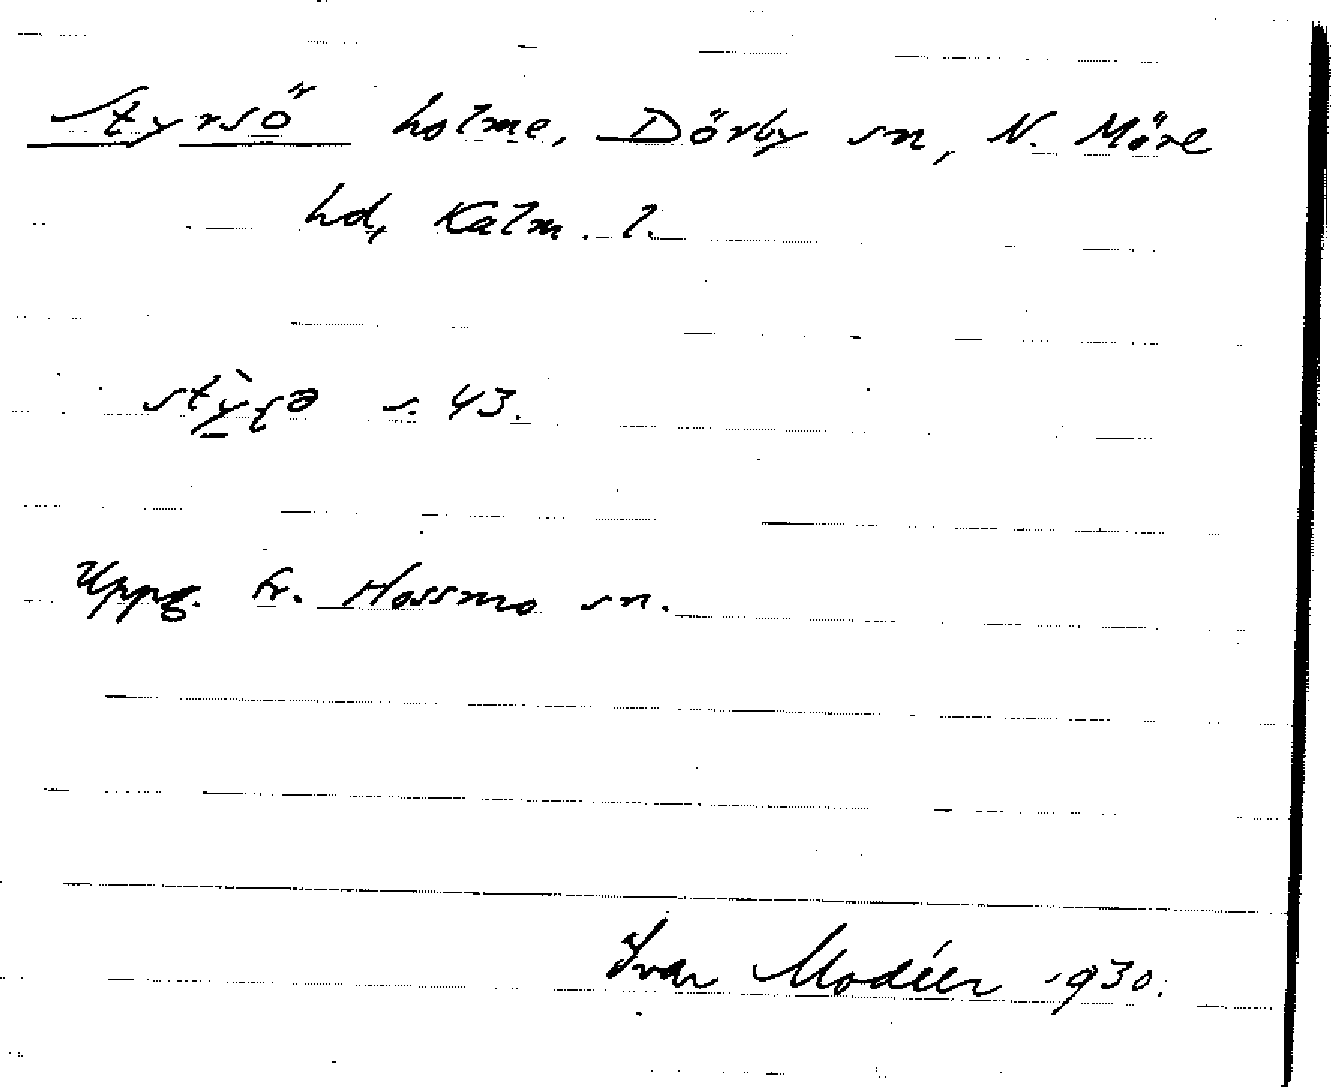 Styrsö holme, Dörby sn, N. Möre
hd, Kalm. l.
s. 43.
Uppg. fr. Hossmo sn.
Ivar Modéer 1930.